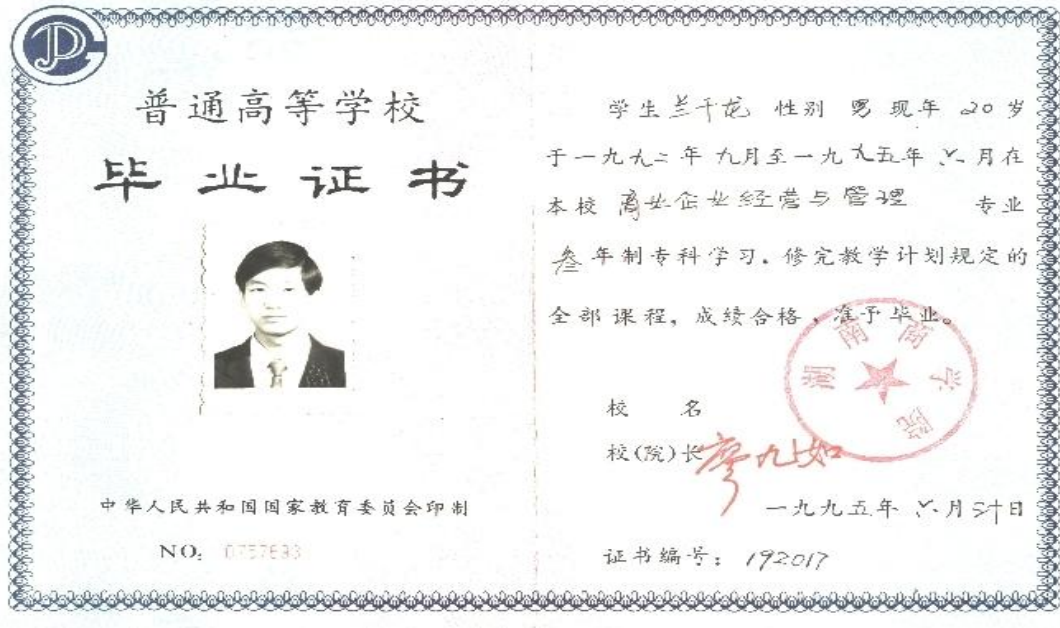 普通高等学校
毕业证书
中华人民共和国国家教育委员会印制
NO:
学生兰千龙 性别 男 现年 20岁
于一九九二年九月至一九九五年六月在
本校 商业企业经营与管理 专业
叁年制专科学习,修完教学计划规定的
全部课程,成绩合格,准予毕业。
湖南商学院
校 名
校(院)长
一九九五年六月卅日
证书编号:192017